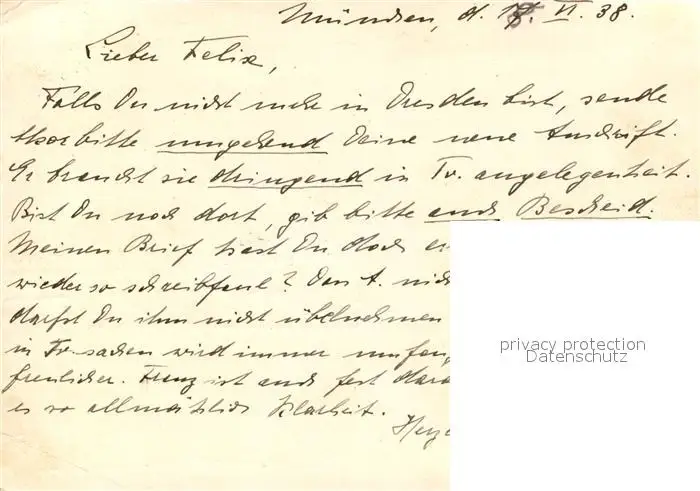 München, d. 17. VI. 38.
Lieber Felix,
Falls Du nicht mehr in Dresden bist, sende
bitte umgehend Deine neue Anschrift.
Er braucht sie dringend in Fr. angelegenheit.
Bist Du noch dort, gib bitte auch Bescheid.
Meinen Brief hast Du doch
wieder so schreibfaul? Den A. nich
darfst Du ihm nicht übelnehmen
in Fr. sachen wird immer umfan
freulicher. Franz ist auch fest dara
es so allmählich Klarheit.
Herz
privacy protection
Datenschutz